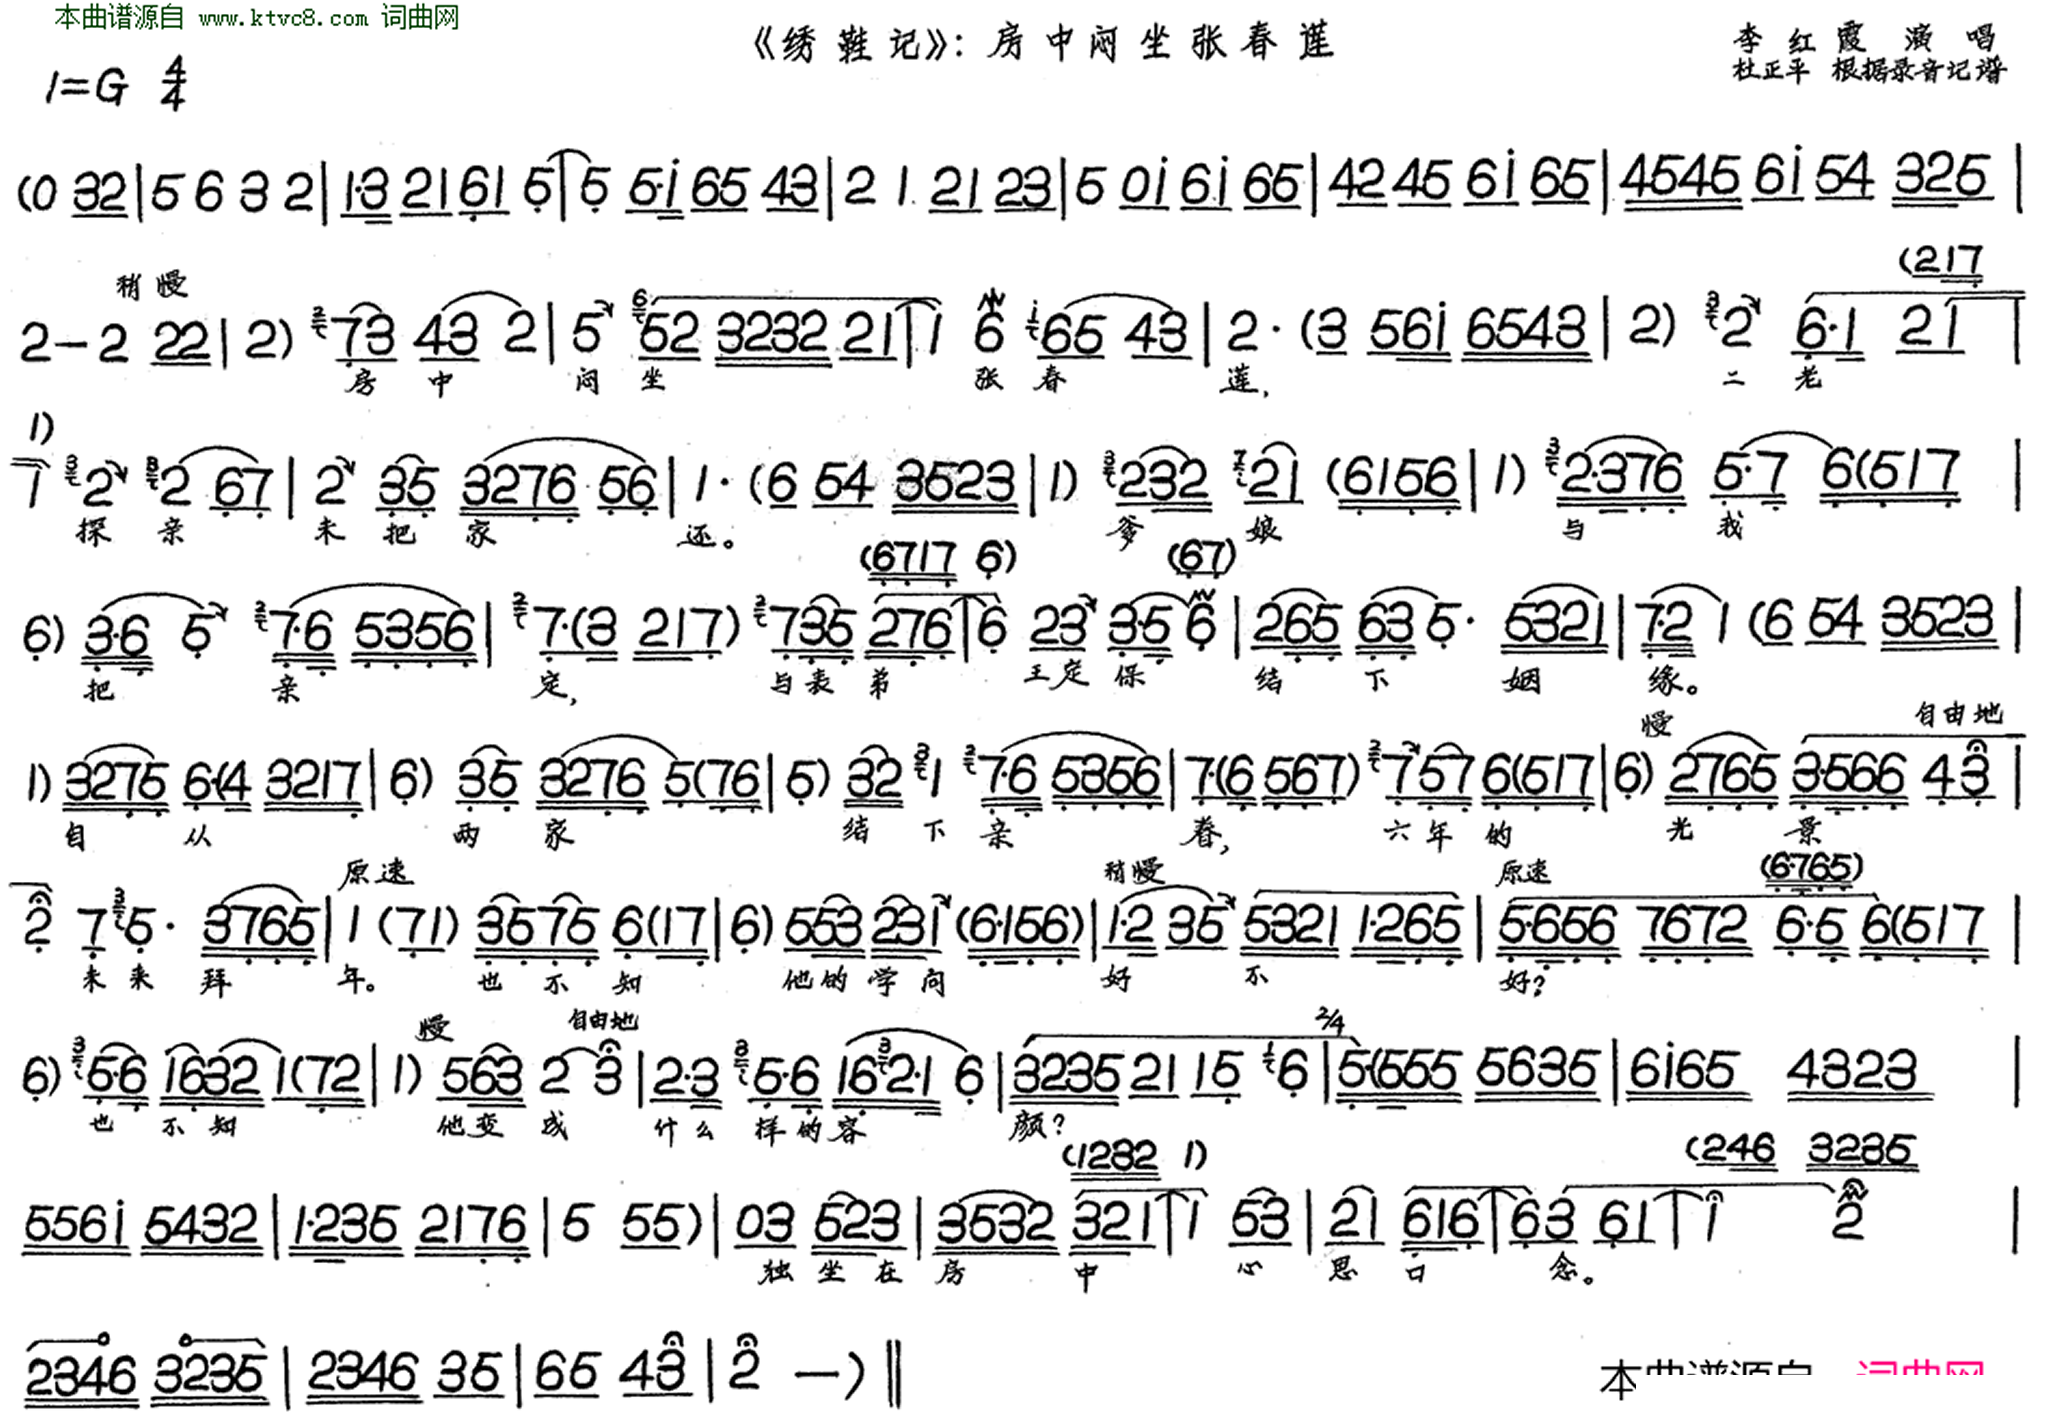 本曲谱源自 www.ktvc8.com 词曲网
《绣鞋记》：房中闷坐张春莲
李红霞演唱
杜正平 根据录音记谱
1=G 4/4
(0 32 | 5 6 3 2 | 1·3 21 61 5 | 5 5·i 65 43 | 2 1 21 23 | 5 0i 6i 65 | 42 45 6i 65 | 4545 6i 54 325 |
稍慢 (217
2 — 2 22 | 2) 73 43 2 | 5 52 3232 21 1 6 65 43 | 2·(3 56i 6543 | 2) 2 6·1 21 |
房 中 闷 坐 张 春 莲, 二 老
1)
1 2 2 67 | 2 35 3276 56 | 1·(6 54 3523 | 1) 232 21 (6156 | 1) 2·376 5·7 6(517 |
探 亲 未 把 家 还。 爹 娘 与 我
(6717 6) (67)
6) 3·6 5 7·6 5356 | 7·(3 217) 735 276 6 23 3·5 6 | 265 63 5· 5321 | 7·2 1 (6 54 3523 |
把 亲 定, 与表 弟 王定 保 结 下 姻 缘。
慢 自由地
1) 3275 6·(4 3217 | 6) 35 3276 5(76 | 5) 32 1 7·6 5356 | 7·(6 567) 757 6(517 | 6) 2765 3·566 43 |
自 从 两 家 结 下 亲 眷, 六 年 的 光 景
原速 稍慢 原速 (6·765)
2 7 5· 3765 | 1 (71) 3575 6(17 | 6) 553 231 (6·156) | 1·2 35 5321 1·265 | 5·656 7672 6·5 6(517 |
未 来 拜 年。 也 不 知 他的 学 问 好 不 好?
慢 自由地 2/4
6) 5·6 1632 1(72 | 1) 563 2 3 | 2·3 5·6 162·1 6 | 3235 21 15 6 | 5·(555 5635 | 6i65 4323 |
也 不 知 他变 成 什 么 样 的 容 颜?
(1232 1) (246 3235
556i 5432 | 1·235 2176 | 5 55) | 03 523 | 3532 321 1 53 | 21 616 63 61 1 2 |
独 坐 在 房 中 心 思 口 念。
2346 3235 | 2346 35 | 65 43 | 2 —) ‖
本曲谱源自 词曲网